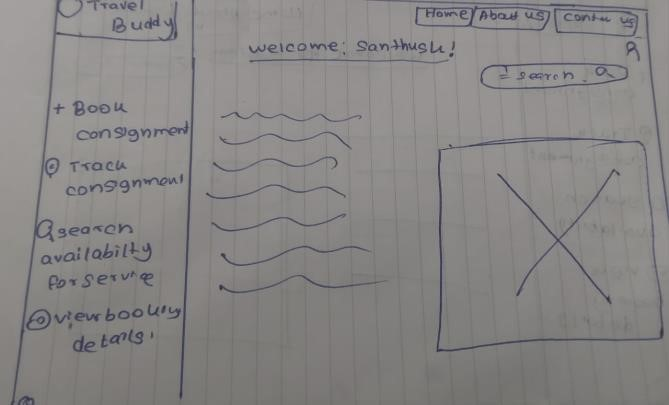 Travel
Buddy
Home
About us
Contu us
welcome: Santhush!
search
+ Book
consignment
Track
consignment
search
availabilty
for service
view booking
details.